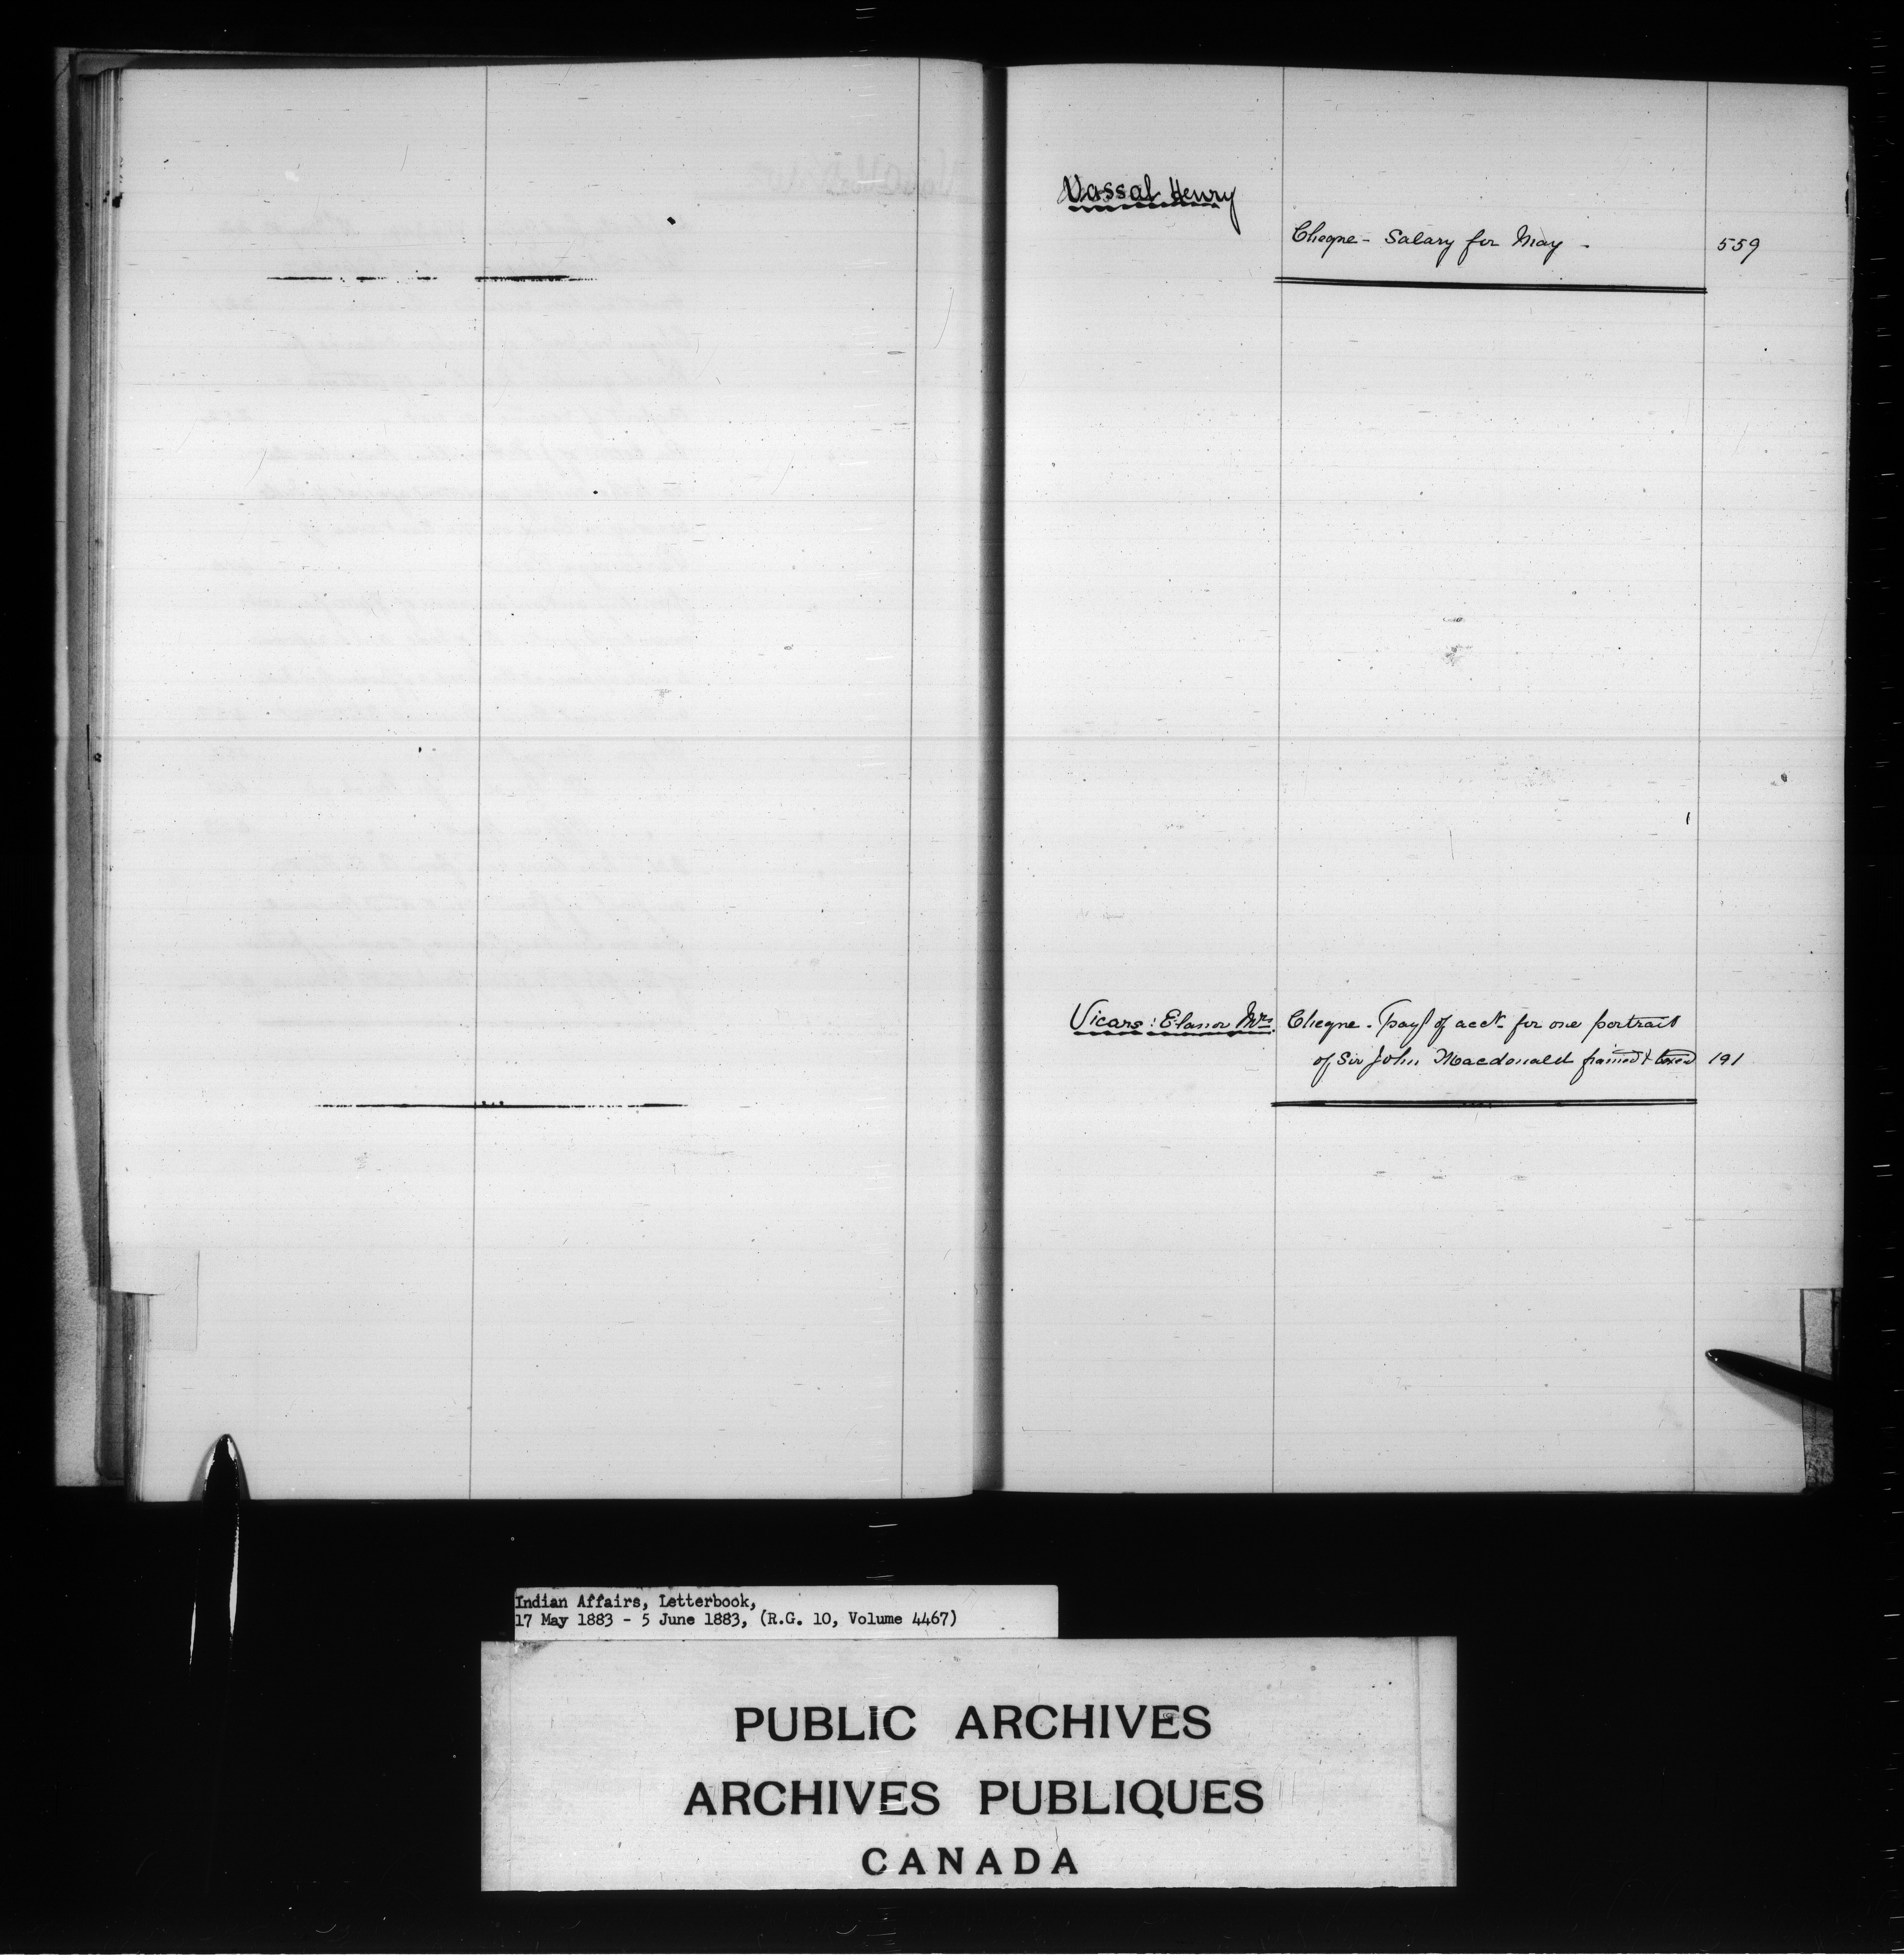 Vassal Henry
Cheque - Salary for May - 559
Vicars: Elanor Mrs. Cheque - Payt of acct for one portrait
of Sir John Macdonald framed & boxed 191
Indian Affairs, Letterbook,
17 May 1883 - 5 June 1883, (R.G. 10, Volume 4467)
PUBLIC ARCHIVES
ARCHIVES PUBLIQUES
CANADA